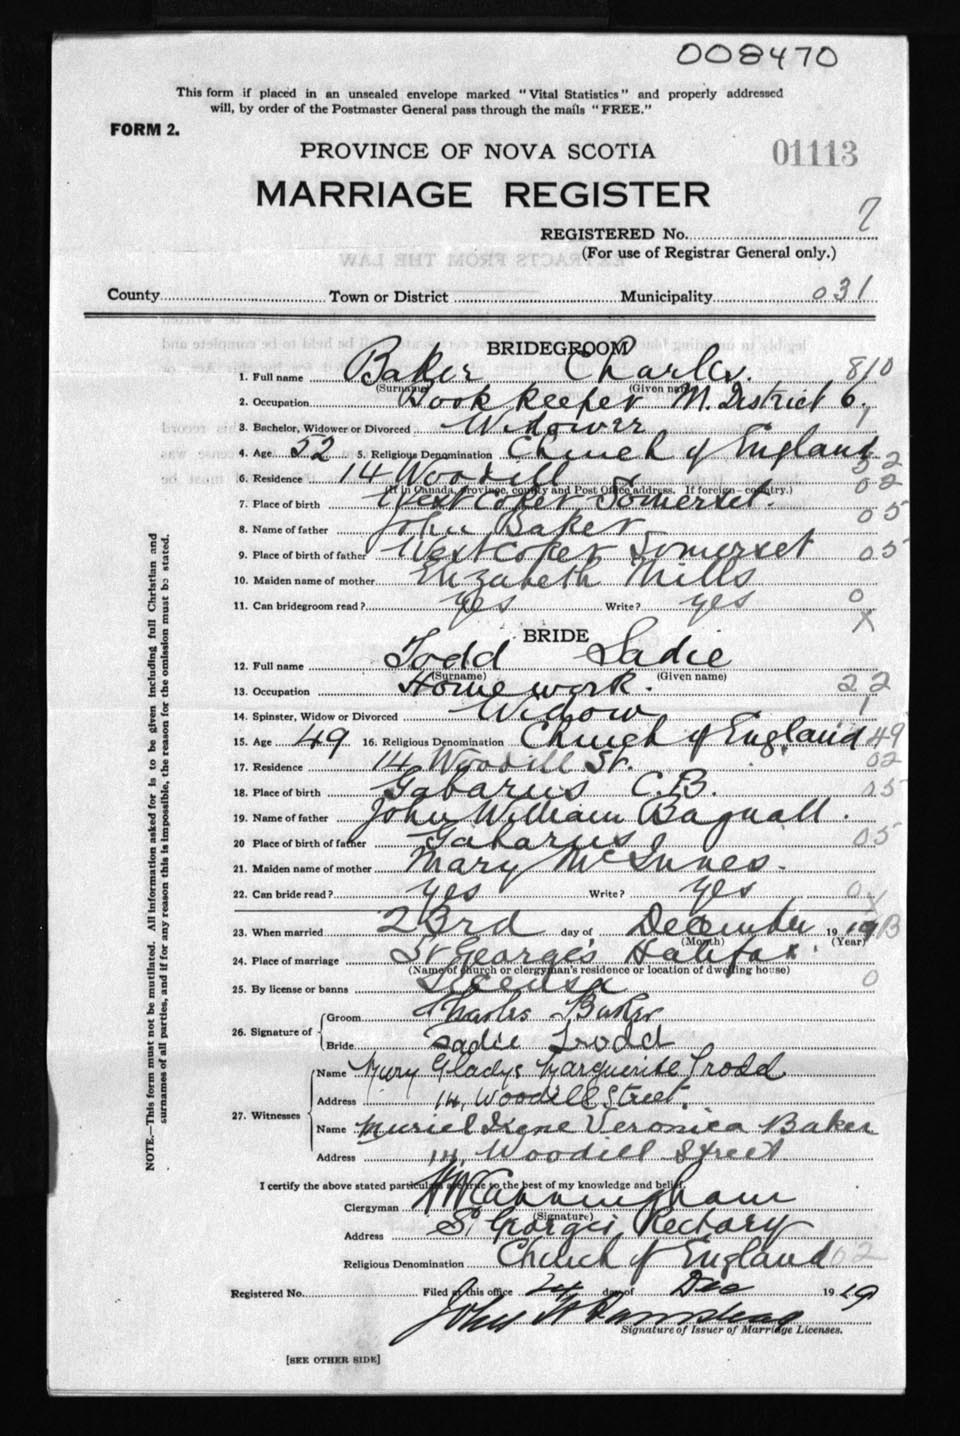 008470
This form if placed in an unsealed envelope marked "Vital Statistics" and properly addressed
will, by order of the Postmaster General pass through the mails "FREE."
FORM 2.
PROVINCE OF NOVA SCOTIA
01113
MARRIAGE REGISTER
REGISTERED No. 7
(For use of Registrar General only.)
EXTRACTS FROM THE LAW
County Town or District Municipality 031
BRIDEGROOM
1. Full name Baker Charles. 810
(Surname) (Given name)
2. Occupation Bookkeeper M. District 6.
3. Bachelor, Widower or Divorced Widower 1
4. Age 52 5. Religious Denomination Church of England 52
6. Residence 14 Woodill 02
(If in Canada, Province, county and Post Office address. If foreign—country.)
7. Place of birth West Coker Somerset. 05
8. Name of father John Baker
9. Place of birth of father West Coker Somerset 05
10. Maiden name of mother Elizabeth Mills
11. Can bridegroom read? yes Write? yes 0
X
BRIDE
12. Full name Todd Sadie
(Surname) (Given name)
13. Occupation Home work. 22
14. Spinster, Widow or Divorced Widow 1
15. Age 49 16. Religious Denomination Church of England 49
17. Residence 14 Woodill St. 02
18. Place of birth Gabarus C.B. 05
19. Name of father John William Bagnall.
20 Place of birth of father Gabarus 05
21. Maiden name of mother Mary McInnes.
22. Can bride read? yes Write? yes 0
X
23. When married 23rd day of December 1919
(Month) (Year)
24. Place of marriage St George's Halifax.
(Name of church or clergyman's residence or location of dwelling house)
25. By license or banns License 0
26. Signature of Groom Charles Baker
Bride Sadie Trodd
27. Witnesses Name Mary Gladys Marguerite Trodd
Address 14 Woodill Street.
Name Muriel Irene Veronica Baker
Address 14 Woodill Street
I certify the above stated particulars are true to the best of my knowledge and belief.
Clergyman H W Cunningham
(Signature)
Address St Georges Rectory
Religious Denomination Church of England 02
Registered No. Filed at this office 24 day of Dec 1919
John W
Signature of Issuer of Marriage Licenses.
[SEE OTHER SIDE]
NOTE.—This form must not be mutilated. All information asked for is to be given including full Christian and
surnames of all parties, and if for any reason this is impossible, the reason for the omission must be stated.